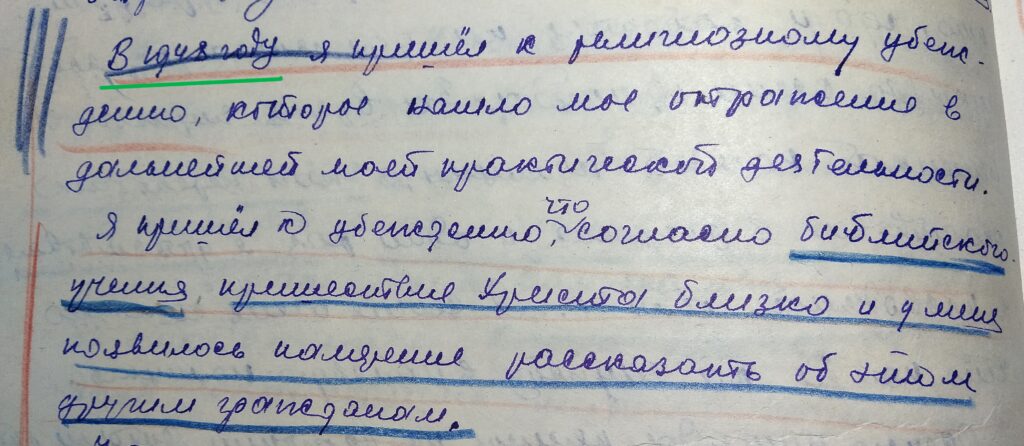 В 1948 году я пришёл к религиозному убеж-
дению, которое нашло мое отражение в
дальнейшей моей практической деятельности.
Я пришёл к убеждению, что согласно библейского
учения, пришествие Христа близко и у меня
появилось намерение рассказать об этом
другим гражданам.